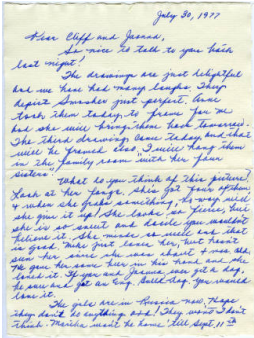 July 30, 1977
Dear Cliff and Joanna,
So nice to talk to you both
last night!
The drawings are just delightful
and we have had many laughs. They
depict Smasher just perfect. Anne
took them today, to frame for me
and she will bring them back tomorrow.
The third drawing came today and that
will be framed also. I will hang them
in the family room "with her four
sisters"
What do you think of this picture!
Look at her fangs, she's got four of them
& when she grabs something, no way will
she give it up! She looks so fierce, but
she is so sweet and docile you wouldn't
believe it. She minds so well and that
is good. Mike just loves her, but hasn't
seen her since she was about 4 wks. old.
He gave her some beer in his hand and she
loved it. If you and Joanna ever get a dog,
be sure and get an Eng. Bulldog, you would
love it.
The girls are in Russia now, hope
they don't do anything bad! They won't I don't
think. Marsha won't be home till Sept. 11th